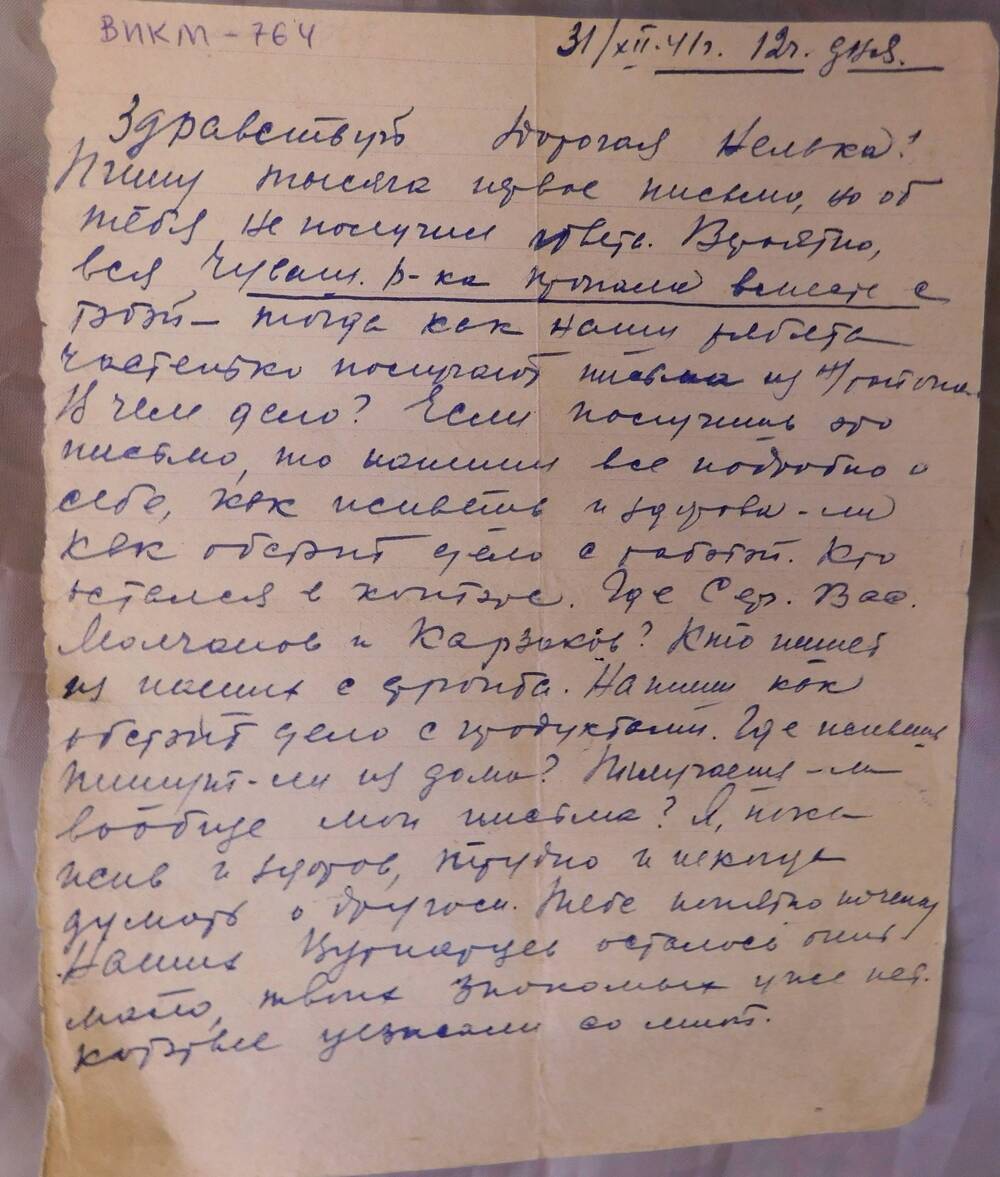 ВИКМ - 764
31/XII-41г. 12ч. дня.
Здравствуй дорогая Нелька!
Пишу тысяча первое письмо, но от
тебя не получил ответа. Вероятно,
вся Чуваш. р-ка пропала вместе с
тобой – тогда как наши ребята
частенько получают письма из
В чем дело? Если получишь это
письмо, то напиши все подробно о
себе, как живешь и здорова-ли
Как обстоит дело с работой. Кто
остался в конторе. Где Сер. Вас.
Молчанов и Карзаков? Кто пишет
из наших с фронта. Напиши как
обстоит дело с продуктами. Где живешь
пишут-ли из дома? Получаешь-ли
вообще мои письма? Я, пока
жив и здоров, трудно и некогда
думать о другом. Тебе понятно почему
Наших Вурнарцев осталось очень
мало, твоих знакомых уже нет.
которые уезжали со мной.